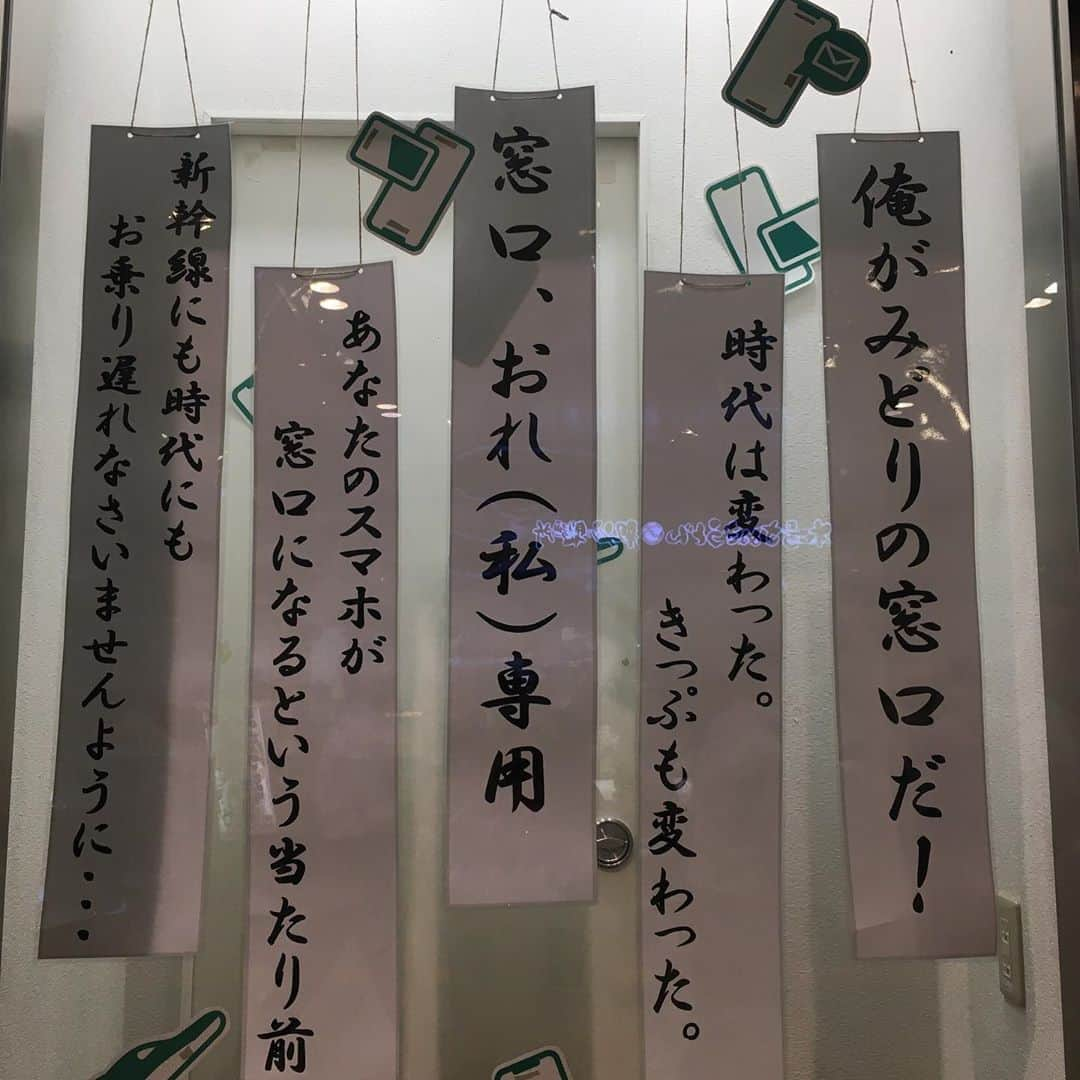 俺がみどりの窓口だ！
時代は変わった。
きっぷも変わった。
窓口、おれ（私）専用
あなたのスマホが
窓口になるという当たり前
新幹線にも時代にも
お乗り遅れなさいませんように・・・